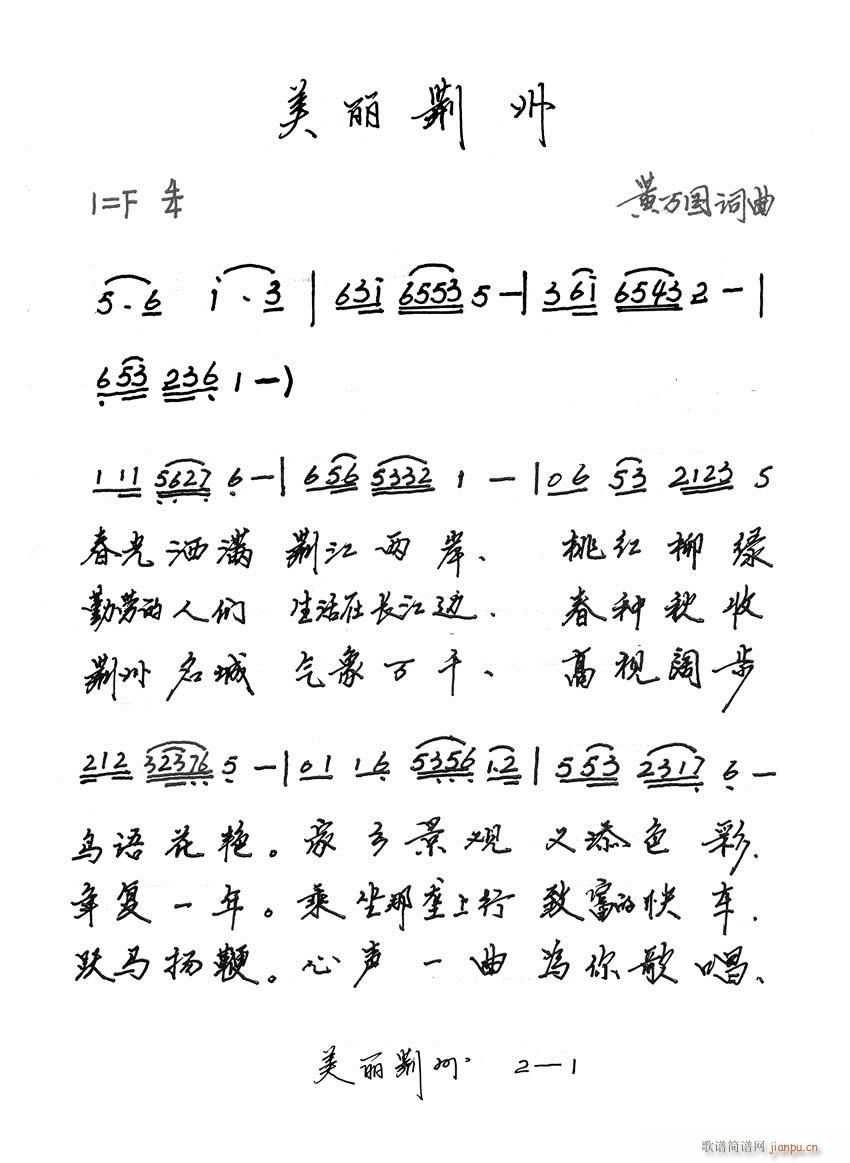 美丽荆州
1=F 4/4 黄万国词曲
5. 6 i. 3 | 63i 6553 5 — | 36i 6543 2 — |
653 236 1 — )
1 11 5627 6 — | 656 5332 1 — | 06 53 2123 5
春光洒满 荆江两岸、 桃红柳绿
勤劳的人们 生活在长江边. 春种秋收
荆州名城 气象万千、 高视阔步
212 32376 5 — | 01 16 5356 1.2 | 553 2317 6 —
鸟语花艳。家乡景观 又添色彩.
年复一年。乘坐那垄上行 致富的快车.
跃马扬鞭。心声一曲 为你歌唱、
美丽荆州 2—1
歌谱简谱网 jianpu.cn